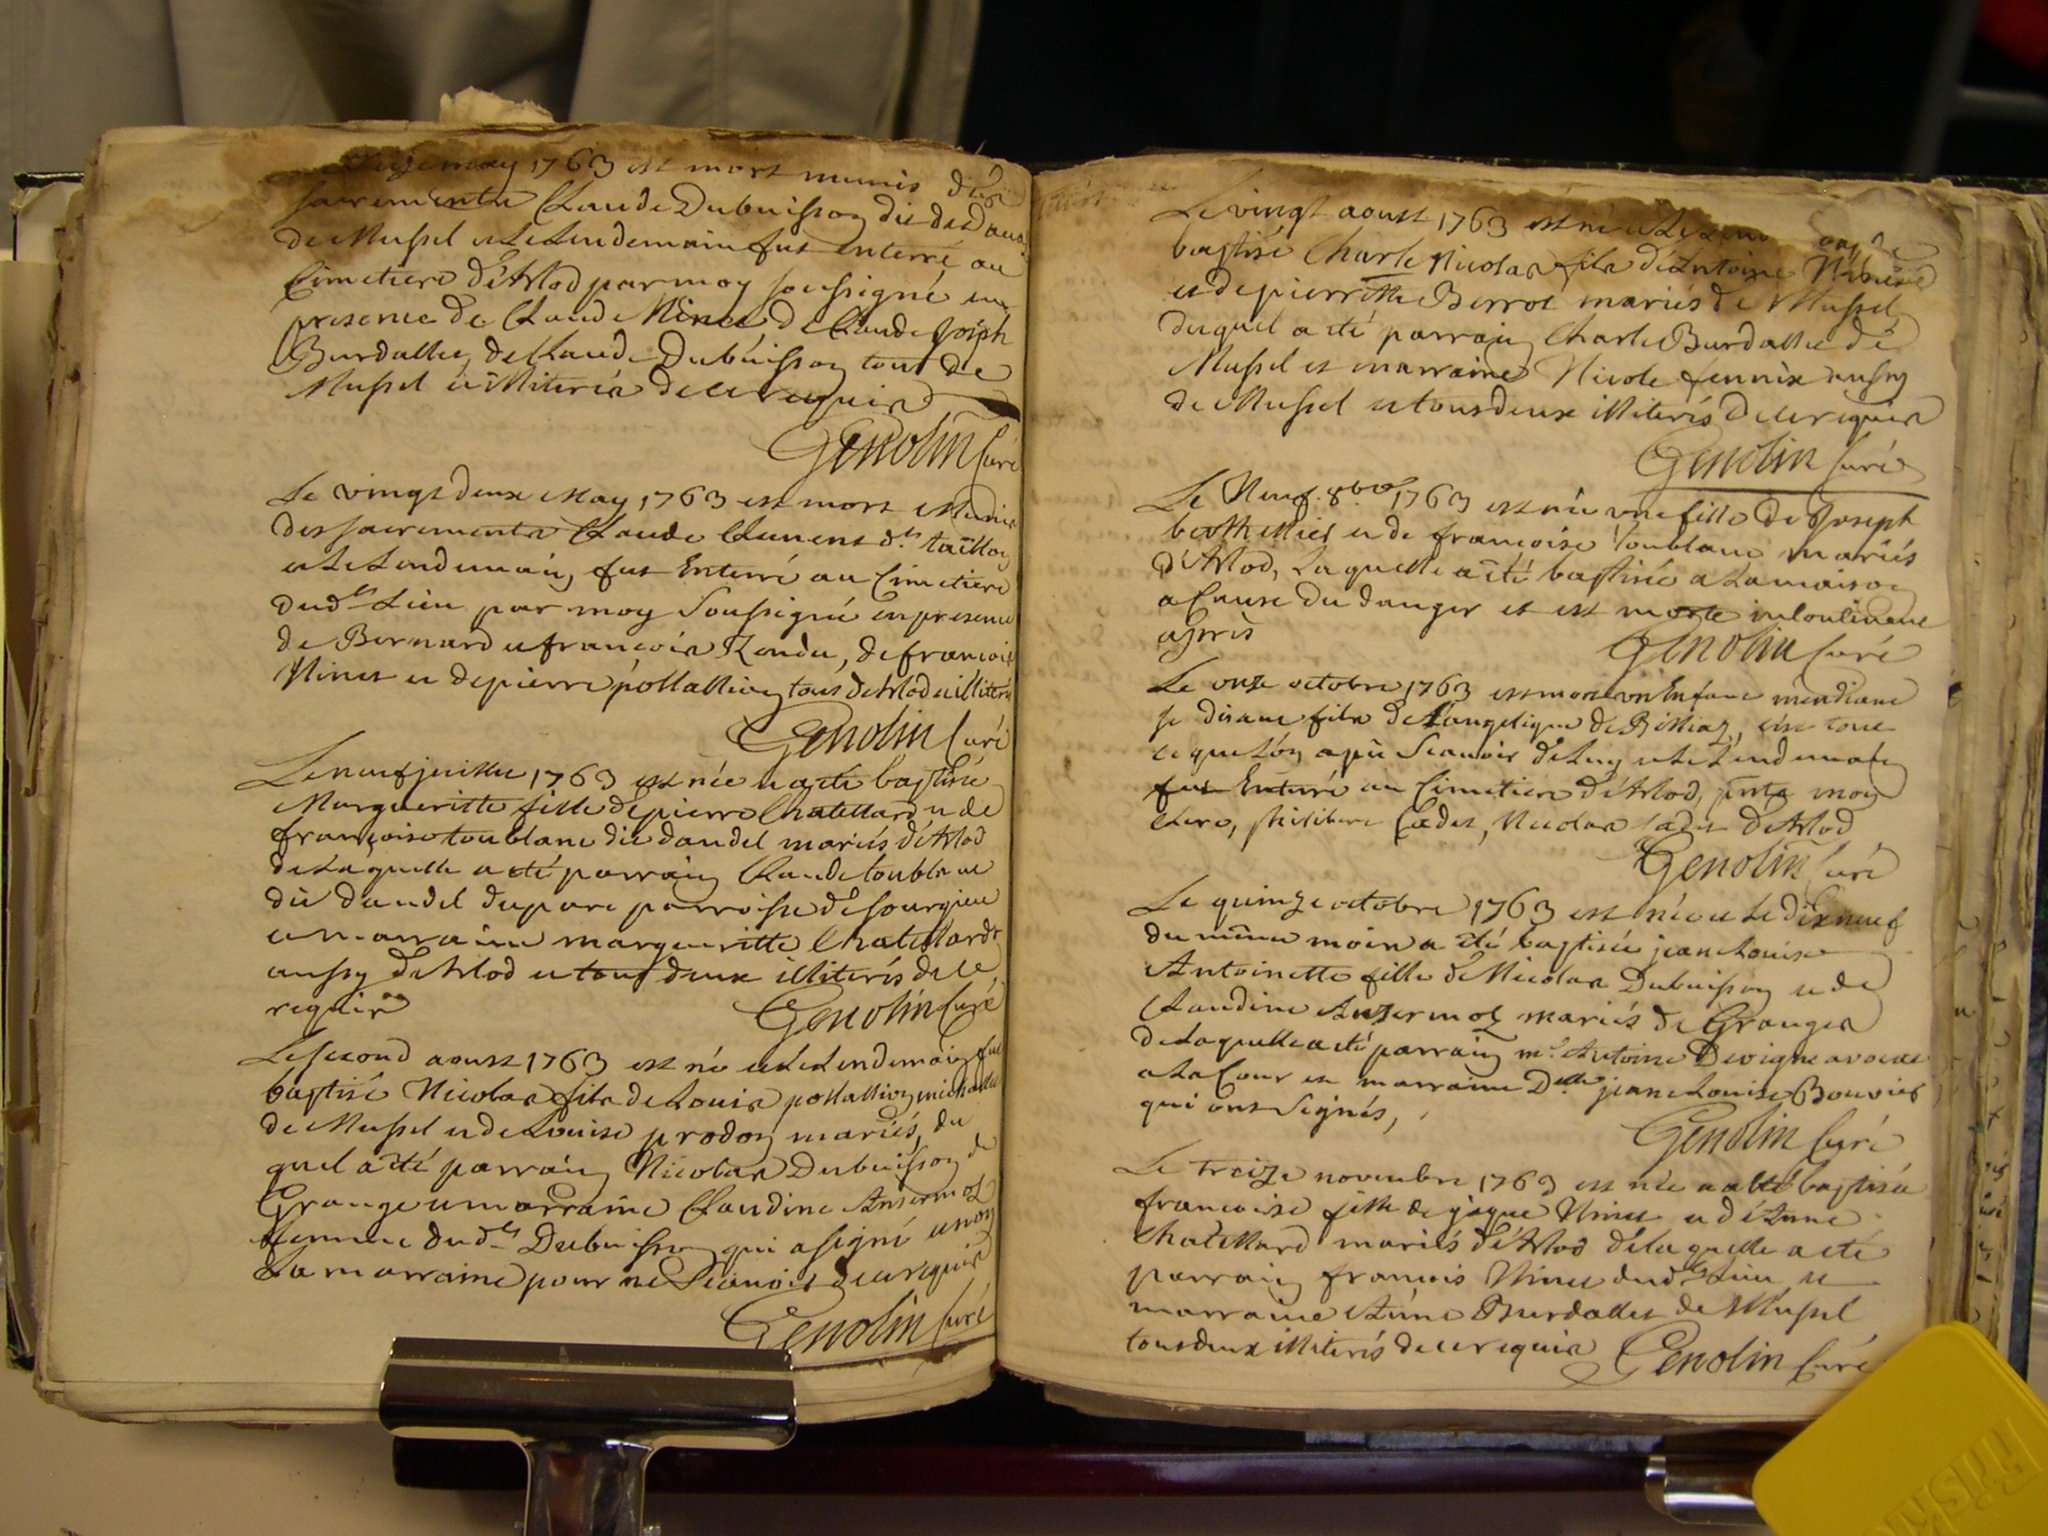 may 1763 est mort munis des
sacrements Claude Dubuisson dit
de Mussel et le lendemain fut enterré au
Cimetiere d'Arlod par moy soussigné en
presence de Claude Ninet de Claude Joseph
Burdallet, de Claude Dubuisson tous de
Mussel et illiterés de ce requis
Genolin Curé
Le vingt deux may 1763 est mort munis
des sacrements Claude Clement dt
et le lendemain fut enterré au Cimetiere
dudt Lieu par moy soussigné en presence
de Bernard et françois Rendu, de francois
Ninet et de pierre pollallion tous d'Arlod et illiterés
Genolin Curé
Le neuf juillet 1763 est née et a eté baptisée
Margueritte fille de pierre Chatellard et de
françoise toublanc dit dandel mariés d'Arlod
de laquelle a eté parrain Claude toublanc
dit dandel du parc parroisse de sourgieu
et marraine margueritte Chatellard
aussy d'Arlod et tous deux illiterés de ce
requis
Genolin Curé
Le second aoust 1763 est né et le lendemain fut
baptisé Nicolas fils de Louis pollallion
de Mussel et de Louise prodon mariés, du
quel a eté parrain Nicolas Dubuisson de
Grange et marraine Claudine Ansermoz
femme dudt Dubuisson qui a signé et non
la marraine pour ne scavoir de ce requise
Genolin Curé
Le vingt aoust 1763 est né et le
baptisé Charle Nicolas fils d'Antoine
et de pierrette Berrot mariés de Mussel
duquel a eté parrain Charle Burdallet de
Mussel et marraine Nicole fennix aussy
de Mussel et tous deux illiterés de ce requis
Genolin Curé
Le Neuf 8bre 1763 est née une fille de Joseph
berthellier et de francoise toublanc mariés
d'Arlod, laquelle a eté baptisée a la maison
a Cause du danger et est morte
après
Genolin Curé
Le onze octobre 1763 est mort un Enfant mendiant
se disant fils de l'angelique de Billiaz, c'est tout
ce que l'on a pû scavoir de luy et le lendemain
fut Enterré au Cimetiere d'Arlod, moy
Curé, philibert Cadet, Nicolas Cadet d'Arlod
Genolin Curé
Le quinze octobre 1763 est née et le dix neuf
du même mois a eté baptisée jeane Louise
Antoinette fille de Nicolas Dubuisson et de
Claudine Ansermoz mariés de Granges
de laquelle a eté parrain mr Antoine Devigne avocat
a la Cour et marraine Delle jeane Louise Bouvier
qui ont signés,
Genolin Curé
Le treize novembre 1763 est née et a eté baptisée
francoise fille de jaque Ninet et d'Anne
Chatellard mariés d'Arlod de laquelle a eté
parrain francois Ninet dudt Lieu et
marraine Anne Burdallet de Mussel
tous deux illiterés de ce requis
Genolin Curé